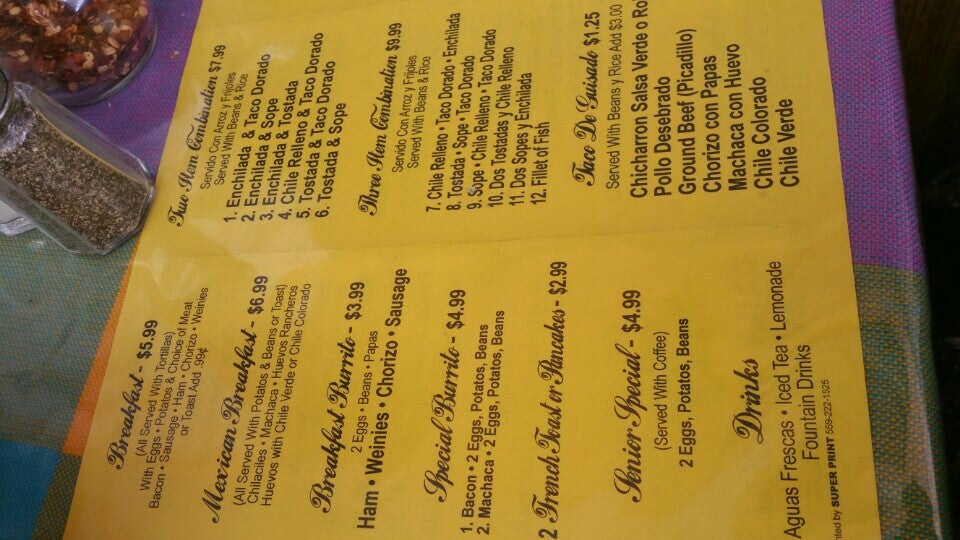 Breakfast - $5.99
(All Served With Tortillas)
With Eggs • Potatos & Choice of Meat
Bacon • Sausage • Ham • Chorizo • Weinies
or Toast Add .99¢
Mexican Breakfast - $6.99
(All Served With Potatos & Beans or Toast)
Chilaciles • Machaca • Huevos Rancheros
Huevos with Chile Verde or Chile Colorado
Breakfast Burrito - $3.99
2 Eggs • Beans • Papas
Ham • Weinies • Chorizo • Sausage
Special Burrito - $4.99
1. Bacon • 2 Eggs, Potatos, Beans
2. Machaca • 2 Eggs, Potatos, Beans
2 French Toast or Pancakes - $2.99
Senior Special - $4.99
(Served With Coffee)
2 Eggs, Potatos, Beans
Drinks
Aguas Frescas • Iced Tea • Lemonade
Fountain Drinks
nted by SUPER PRINT 559-222-1525
Two Item Combination $7.99
Servido Con Arroz y Frijoles
Served With Beans & Rice
1. Enchilada & Taco Dorado
2. Enchilada & Sope
3. Enchilada & Tostada
4. Chile Relleno & Taco Dorado
5. Tostada & Taco Dorado
6. Tostada & Sope
Three Item Combination $9.99
Servido Con Arroz y Frijoles
Served With Beans & Rice
7. Chile Relleno • Taco Dorado • Enchilada
8. Tostada • Sope • Taco Dorado
9. Sope • Chile Relleno • Taco Dorado
10. Dos Tostadas y Chile Relleno
11. Dos Sopes y Enchilada
12. Fillet of Fish
Taco De Guisado $1.25
Served With Beans y Rice Add $3.00
Chicharron Salsa Verde o Ro
Pollo Desebrado
Ground Beef (Picadillo)
Chorizo con Papas
Machaca con Huevo
Chile Colorado
Chile Verde